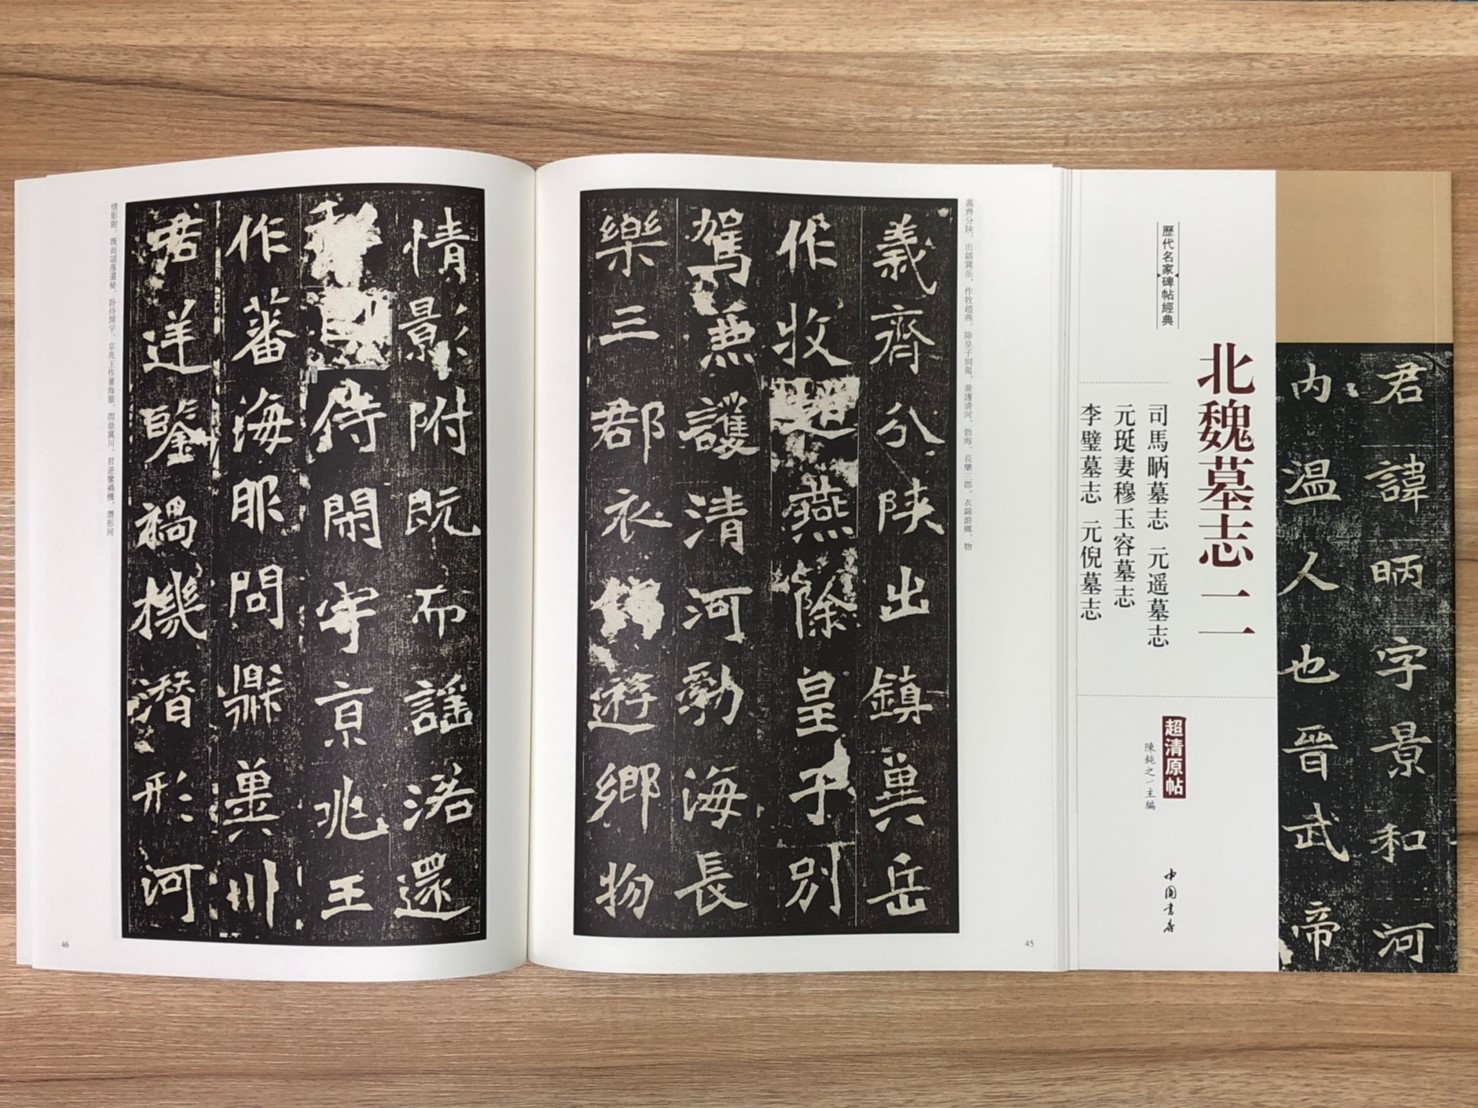 君諱昞字景和河
内温人也晉武帝
歷代名家碑帖經典
北魏墓志 二
司馬昞墓志 元遥墓志
元珽妻穆玉容墓志
李璧墓志 元倪墓志
超清原帖
陳鈍之／主編
中國書店
義齊分陝，出鎮冀岳，作牧趙燕，除皇子別駕，兼護清河、勃海、長樂三郡，衣錦游鄉，物
義齊分陝出鎮冀岳
作牧趙燕除皇子別
駕兼護清河勃海長
樂三郡衣錦遊鄉物
45
情影附既而謡落還
侍閑宇京兆王
作蕃海服問鼎冀川
君逆鑒禍機潛形河
情影附，既而謡落還秘，卧侍閑宇，京兆王作蕃海服，問鼎冀川，君逆鑒禍機，潛形河
46